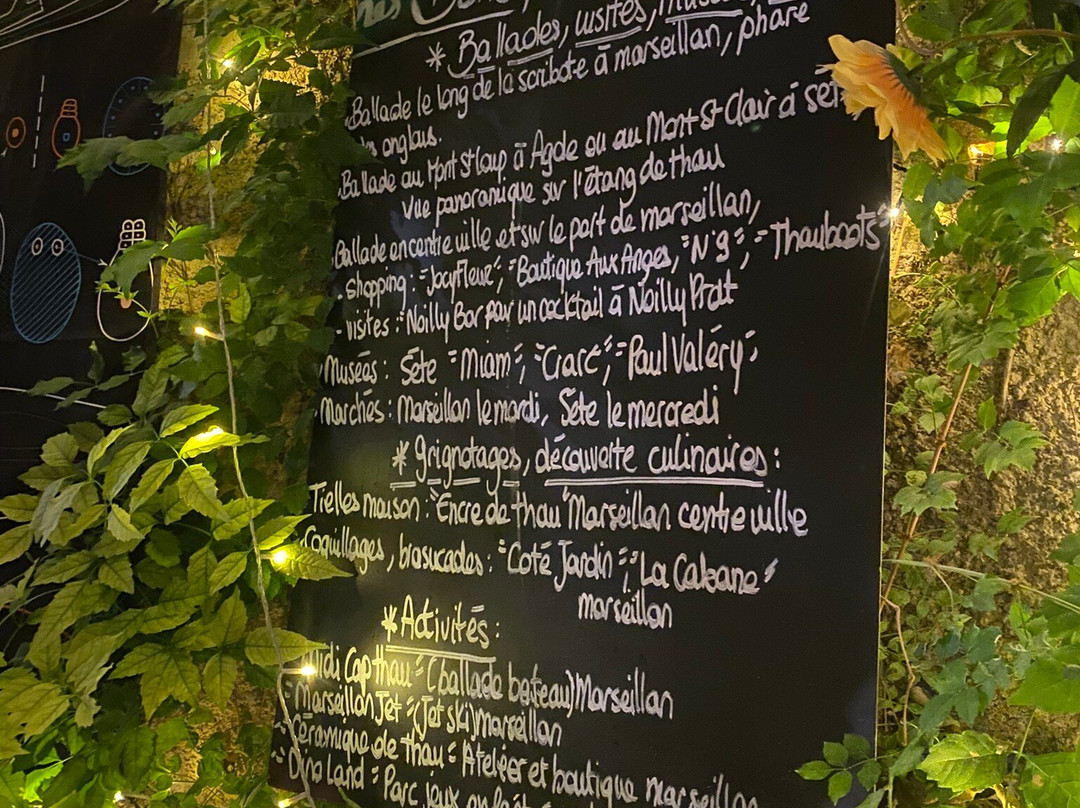 * Ballades, visites,
Ballade le long de la scribote à marseillan, phare
des onglous.
Ballade au Mont St loup à Agde ou au Mont St Clair à
Vue panoramique sur l'étang de thau
Ballade en centre ville et sur le port de marseillan,
- shopping : "JoayFleur", "Boutique Aux Anges, "N°9", "Thauboats"
- visites : "Noilly Bar pour un cocktail à Noilly Prat
Musées : Sète "Miam", "Crac", "Paul Valéry",
Marchés : Marseillan le mardi, Sète le mercredi
* grignotages, découverte culinaires :
Tielles maison : "Encre de thau" Marseillan centre ville
Coquillages, brasucades : "Coté Jardin", "La Cabane"
marseillan
* Activités :
Cap thau = (ballade bateau) Marseillan
Marseillan Jet = (Jet ski) marseillan
- Céramique de thau = Atelier et boutique marseillan
- Dino Land = Parc jeux